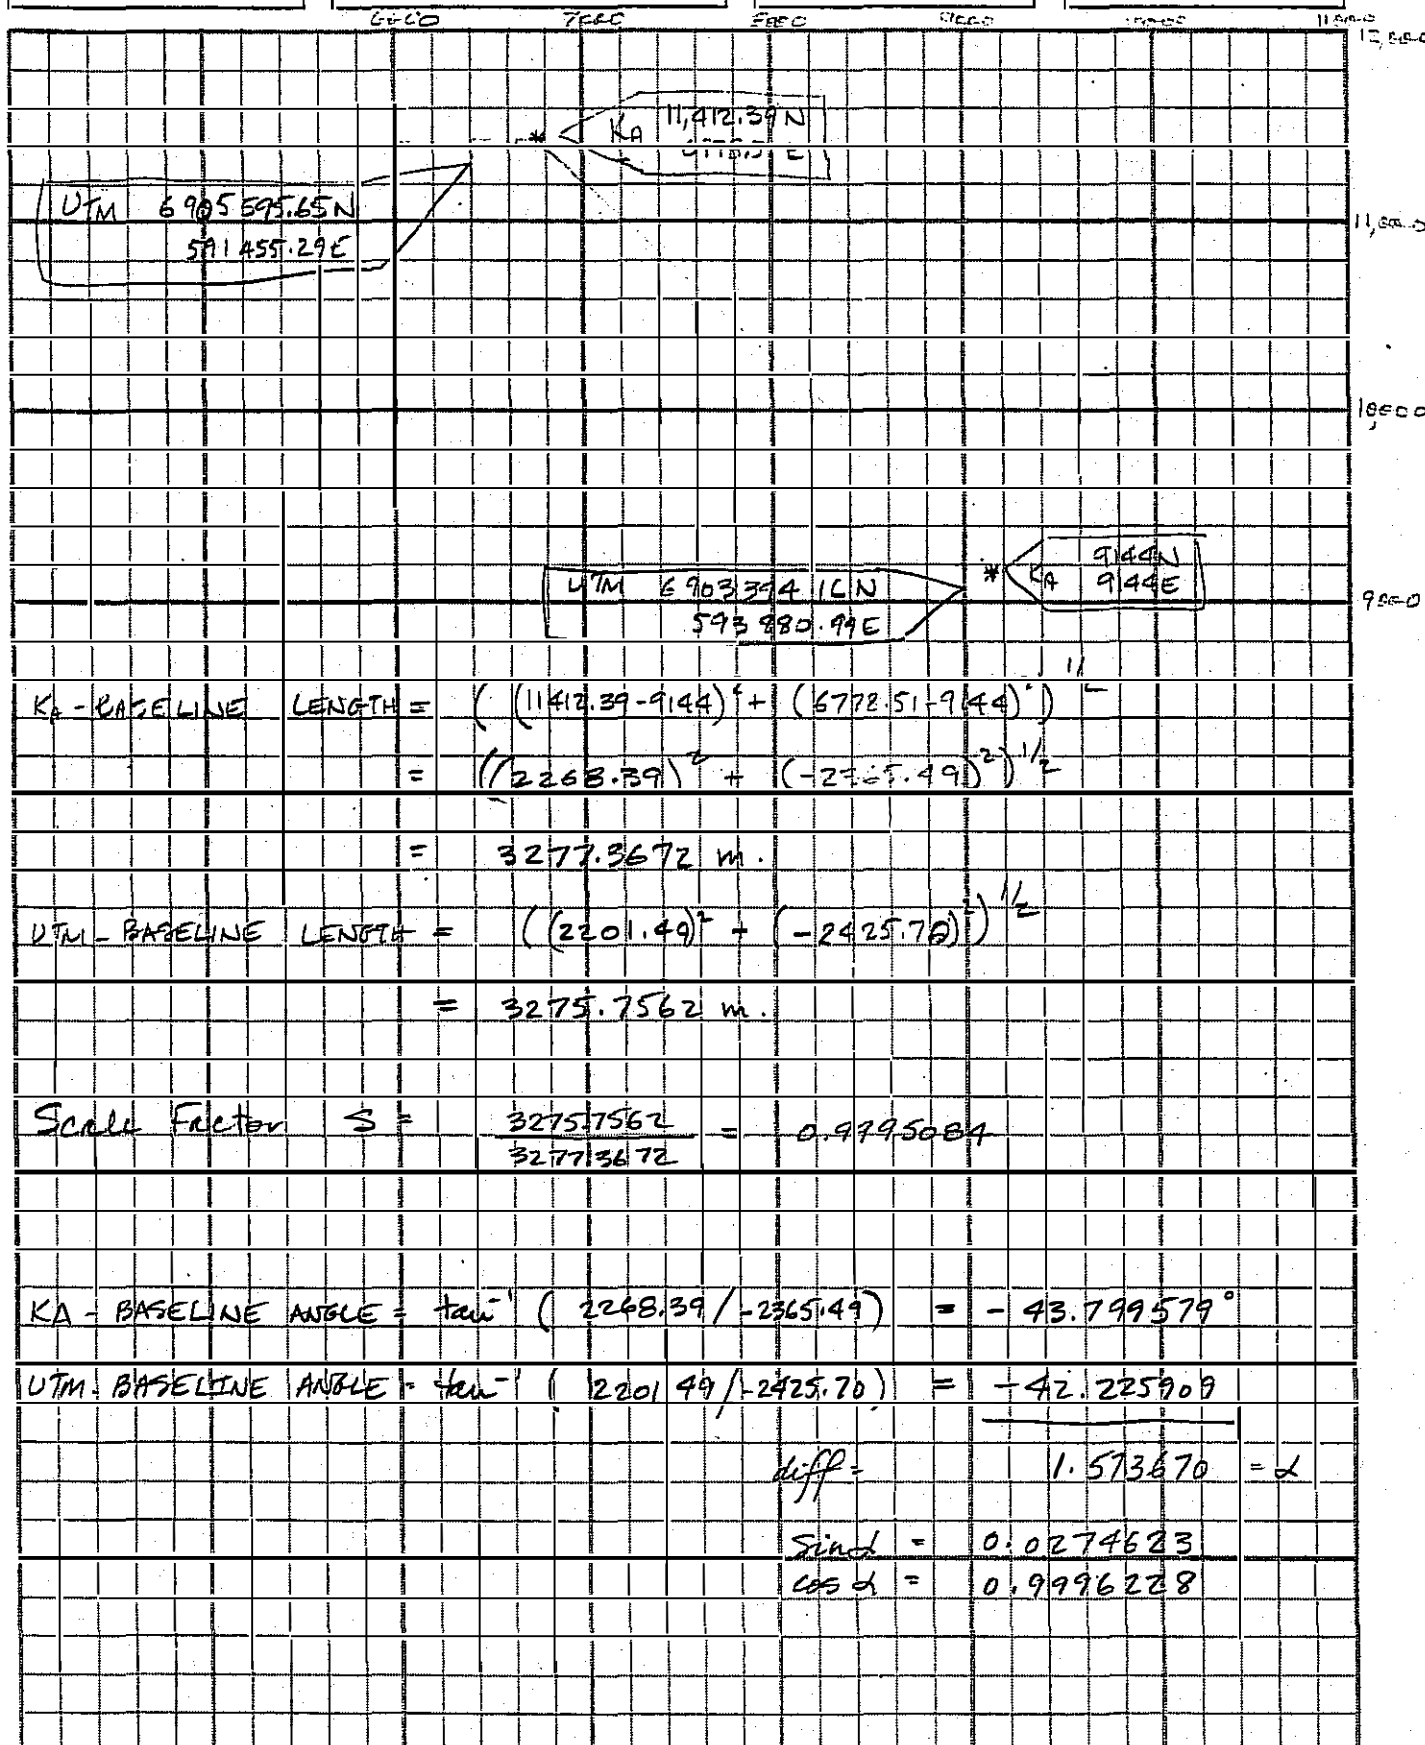 7000
11,412.39 N
KA
UTM 6905595.65N
591455.29E
11,000
10,000
9144N
KA 9144E
UTM 6903394.16N
593880.99E
9000
KA - BASELINE LENGTH = ((11412.39-9144)² + (6772.51-9144)²)^1/2
= ((2268.39)² + (-2365.49)²)^1/2
= 3277.3672 m.
UTM - BASELINE LENGTH = ((2201.49)² + (-2425.70)²)^1/2
= 3275.7562 m.
Scale Factor S = 3275.7562 / 3277.3672 = 0.9995084
KA - BASELINE ANGLE = tan⁻¹ (2268.39/-2365.49) = -43.799579°
UTM - BASELINE ANGLE = tan⁻¹ (2201.49/-2425.70) = -42.225909
diff = 1.573670 = α
Sin α = 0.0274623
cos α = 0.9996228